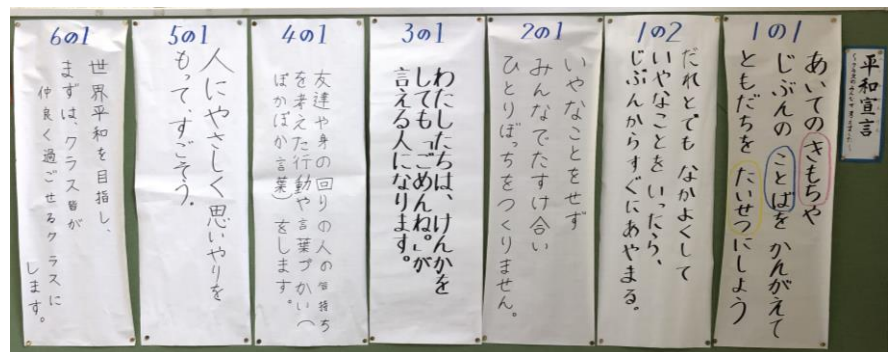 平和宣言
1の1
あいてのきもちや
じぶんのことばをかんがえて
ともだちをたいせつにしよう
1の2
だれとでもなかよくして
いやなことをいったら、
じぶんからすぐにあやまる。
2の1
いやなことをせず
みんなでたすけ合い
ひとりぼっちをつくりません。
3の1
わたしたちは、けんかを
しても「ごめんね。」が
言える人になります。
4の1
友達や身の回りの人の気持ち
を考えた行動や言葉づかい(
ぽかぽか言葉)をします。
5の1
人にやさしく思いやりを
もって、すごそう。
6の1
世界平和を目指し、
まずは、クラス皆が
仲良く過ごせるクラスに
します。